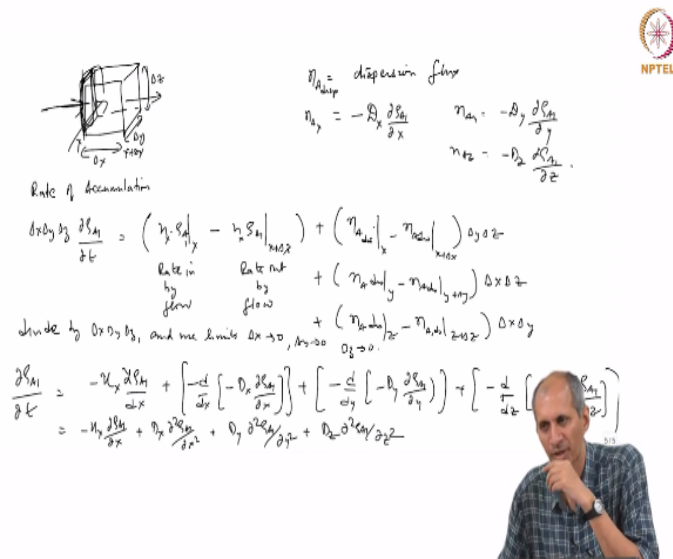 NPTEL
Δz
Δy
x Δx x+Δx
n_A disp = dispersion flux
n_Ax = -D_x ∂ρ_A1/∂x n_Ay = -D_y ∂ρ_A1/∂y
n_Az = -D_z ∂ρ_A1/∂z .
Rate of Accumulation
ΔxΔyΔz ∂ρ_A1/∂t = (u_x ρ_A1|_x - u_x ρ_A1|_x+Δx) + (n_A dis|_x - n_A dis|_x+Δx) ΔyΔz
Rate in by flow Rate out by flow + (n_A dis|_y - n_A dis|_y+Δy) ΔxΔz
+ (n_A dis|_z - n_A dis|_z+Δz) ΔxΔy
divide by ΔxΔyΔz, and use limits Δx→0, Δy→0 Δz→0.
∂ρ_A1/∂t = -u_x ∂ρ_A1/dx + [-d/dx [-D_x ∂ρ_A1/∂x]] + [-d/dy [-D_y ∂ρ_A1/∂y)] + [-d/dz [
= -u_x ∂ρ_A1/∂x + D_x ∂²ρ_A1/∂x² + D_y ∂²ρ_A1/∂y² + D_z ∂²ρ_A1/∂z²